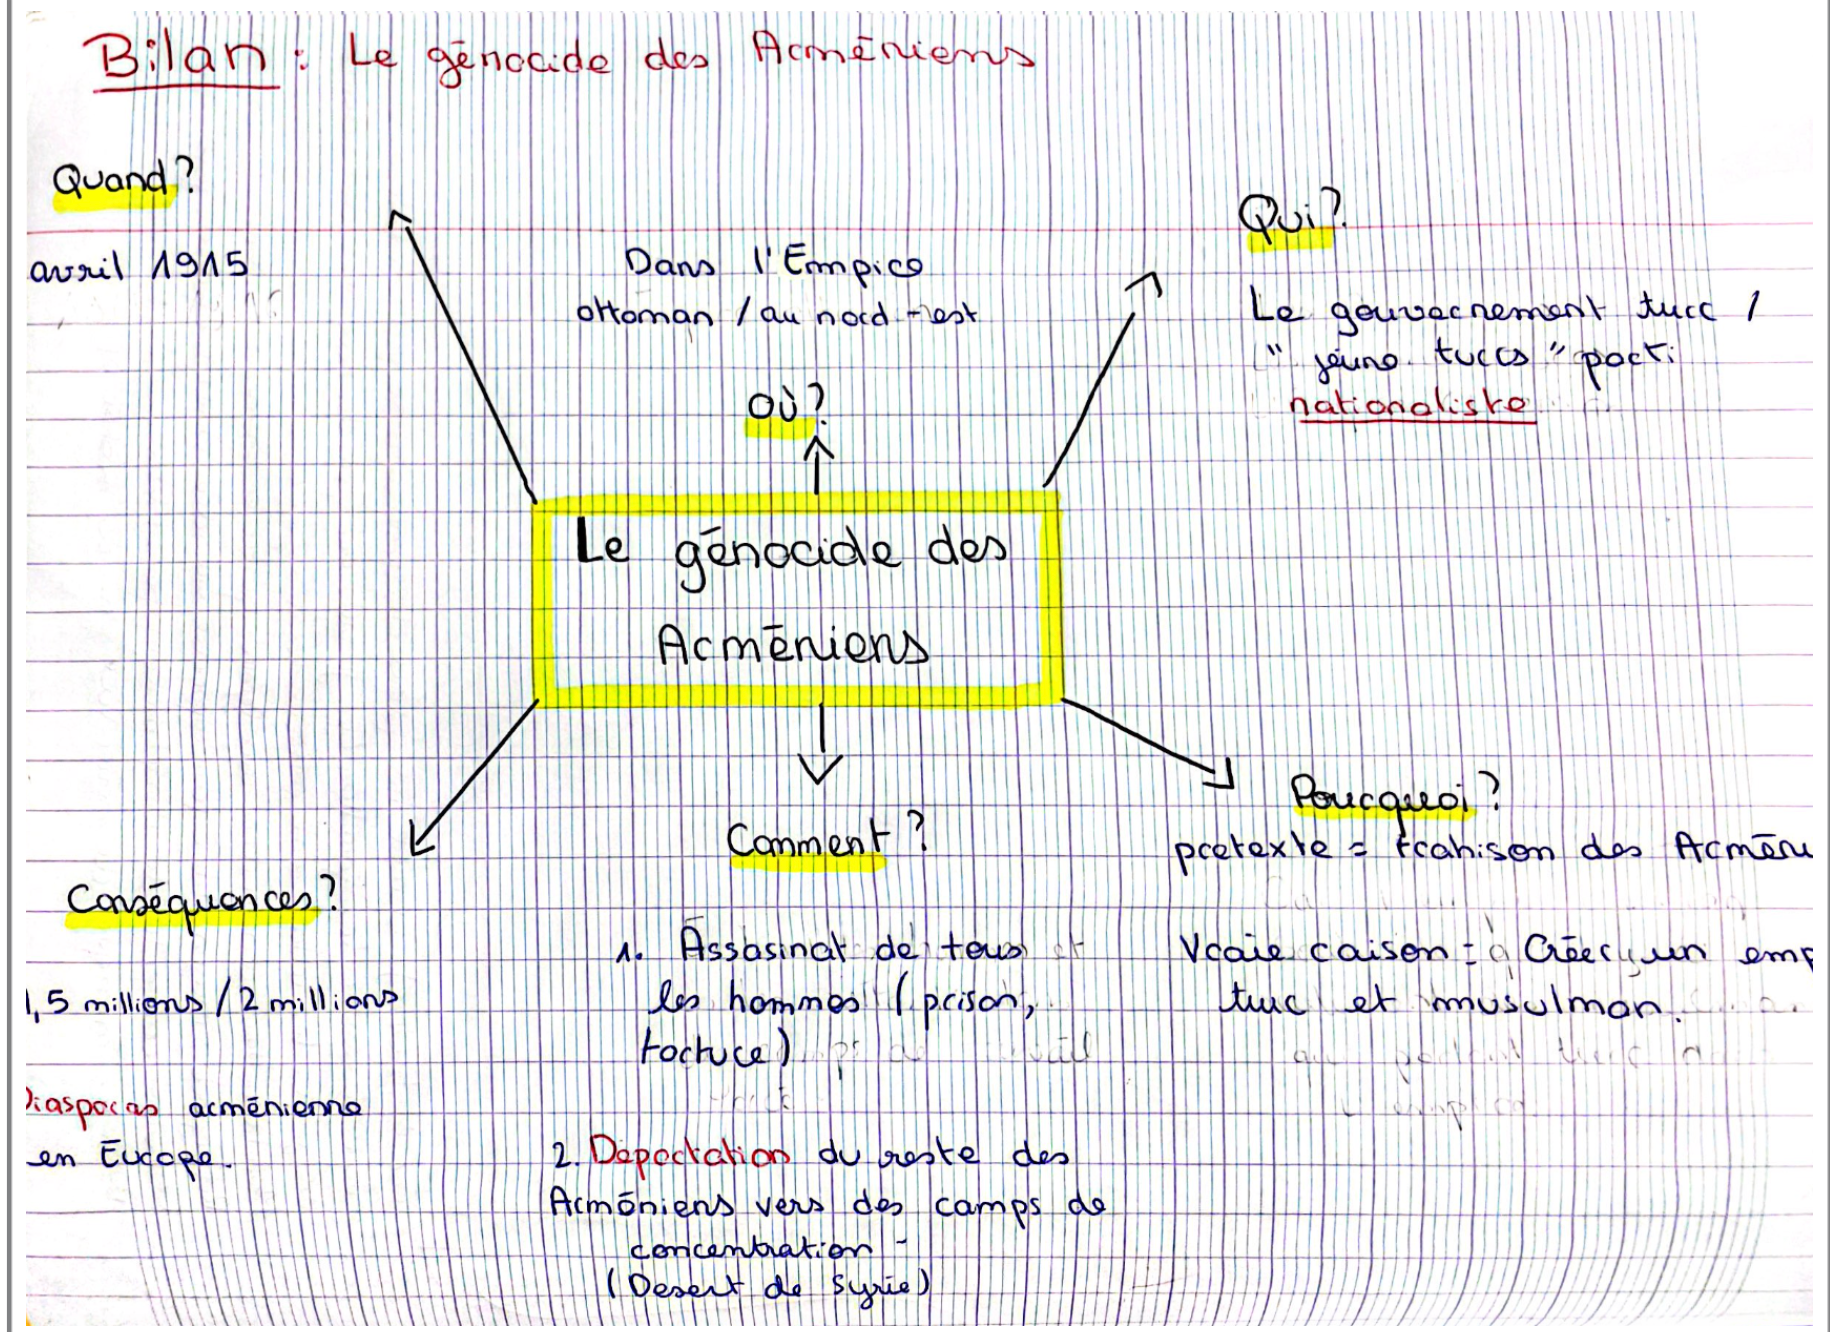 Bilan : Le génocide des Arméniens
Quand ?
avril 1915
Dans l'Empire
ottoman / au nord-est
Où ?
Qui ?
Le gouvernement turc /
"jeune turcs" parti
nationaliste
Le génocide des
Arméniens
Pourquoi ?
pretexte = trahison des Arméni
Vraie raison = Créer un emp
turc et musulman.
Comment ?
1. Assasinat de tous
les hommes (prison,
torture)
2. Déportation du reste des
Arméniens vers des camps de
concentration -
(Desert de Syrie)
Conséquences ?
1,5 millions / 2 millions
Diasporas arménienne
en Europe.